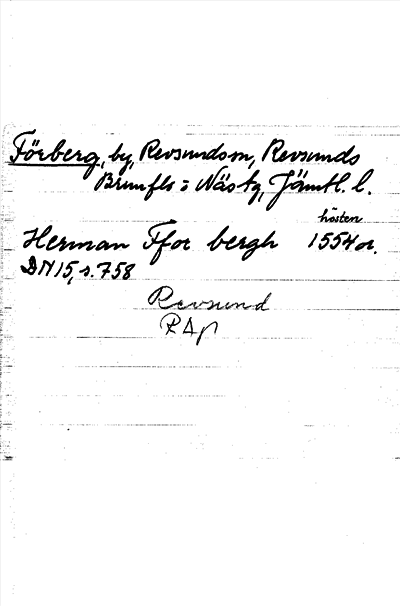 Förberg, by, Revsunds sn, Revsunds
Brunflo o Näs tg, Jämtl. l.
hösten
Herman Ffor bergh 1554 or.
DN 15, s. 758
Revsund
RAp